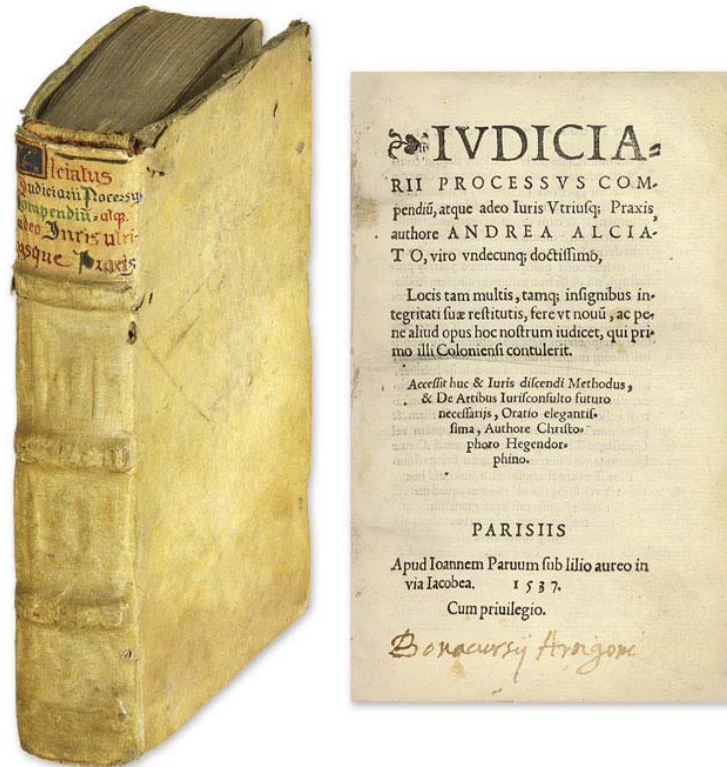 Alciatus
Iudiciarii Processus
Compendiũ, atq.
adeo Iuris utri-
usque Praxis
IVDICIA-
RII PROCESSVS COM-
pendiũ, atque adeo Iuris Vtriusq; Praxis,
authore ANDREA ALCIA-
TO, viro vndecunq; doctiſſimo,
Locis tam multis, tamq; inſignibus in-
tegritati ſuæ reſtitutis, fere vt nouũ, ac pe-
ne aliud opus hoc noſtrum iudicet, qui pri-
mo illi Colonienſi contulerit.
Acceſſit huc & Iuris diſcendi Methodus,
& De Artibus Iuriſconſulto futuro
neceſſarijs, Oratio elegantiſ-
ſima, Authore Chriſto-
phoro Hegendor-
phino.
PARISIIS
Apud Ioannem Paruum ſub lilio aureo in
via Iacobea. 1537.
Cum priuilegio.
Bonacursij Arrigoni